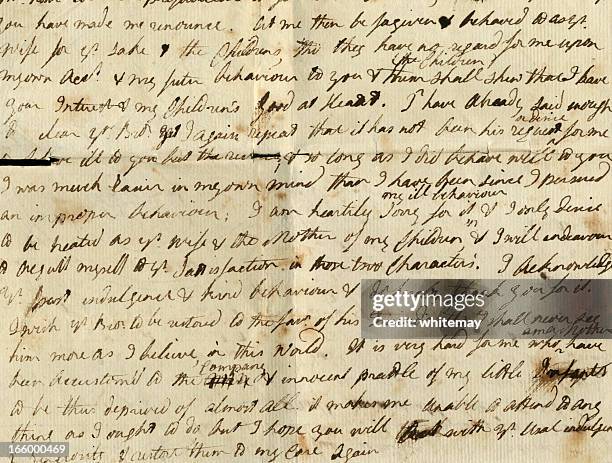 you have made me renounce let me then be forgiven & behaved to as yr.
Wife for yr. sake & the Children's tho they have no regard for me upon
my own Acct. & my future behaviour to you & the Children shall shew that I have
your Interest & my Children's Good at Heart. I have already said enough
to clear yr. Bror. yet I again repeat that it has not been his advice for me
to behave ill to you but the so long as I did behave well to you
I was much easier in my own mind than I have been since I pursued
an improper behaviour; I am heartily sorry for my ill behaviour & I only desire
to be treated as yr. Wife & the Mother of my Children & I will endeavour
to regulate myself to yr. Satisfaction in those two Characters. I acknowledge
yr. indulgence & kind behaviour & thank you for it.
I wish yr. Bror. to be restored to the favr. of his I shall never see
him more as I believe in this World. It is very hard for me who am a Mother & have
been accustom'd to the Company & innocent prattle of my little Infants
to be thus deprived of almost all it makes me unable to attend to any
thing as I ought to do but I hope you will with yr. usual indulgence
& restore them to my Care again
gettyimages
Credit: whitemay
166000469